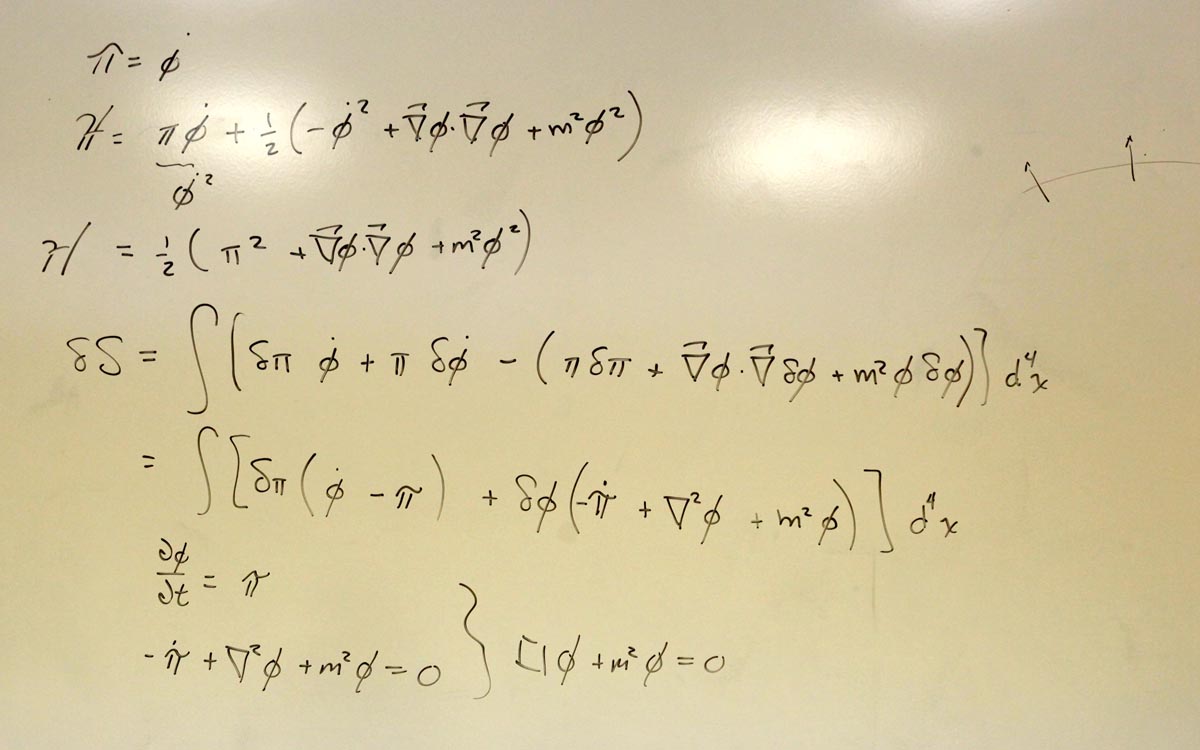 π = φ̇
ℋ = πφ̇ + ½(-φ̇² + ∇⃗φ·∇⃗φ + m²φ²)
φ̇²
ℋ = ½(π² + ∇⃗φ·∇⃗φ + m²φ²)
δS = ∫[δπ φ̇ + π δφ̇ - (π δπ + ∇⃗φ·∇⃗δφ + m²φ δφ)] d⁴x
= ∫[δπ(φ̇ - π) + δφ(-π̇ + ∇²φ + m²φ)] d⁴x
∂φ/∂t = π
-π̇ + ∇²φ + m²φ = 0 } □φ + m²φ = 0